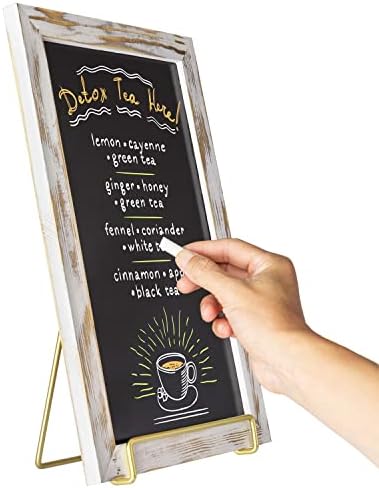 Detox Tea Here!
lemon • cayenne
• green tea
ginger • honey
• green tea
fennel • coriander
• white
cinnamon •
• black tea